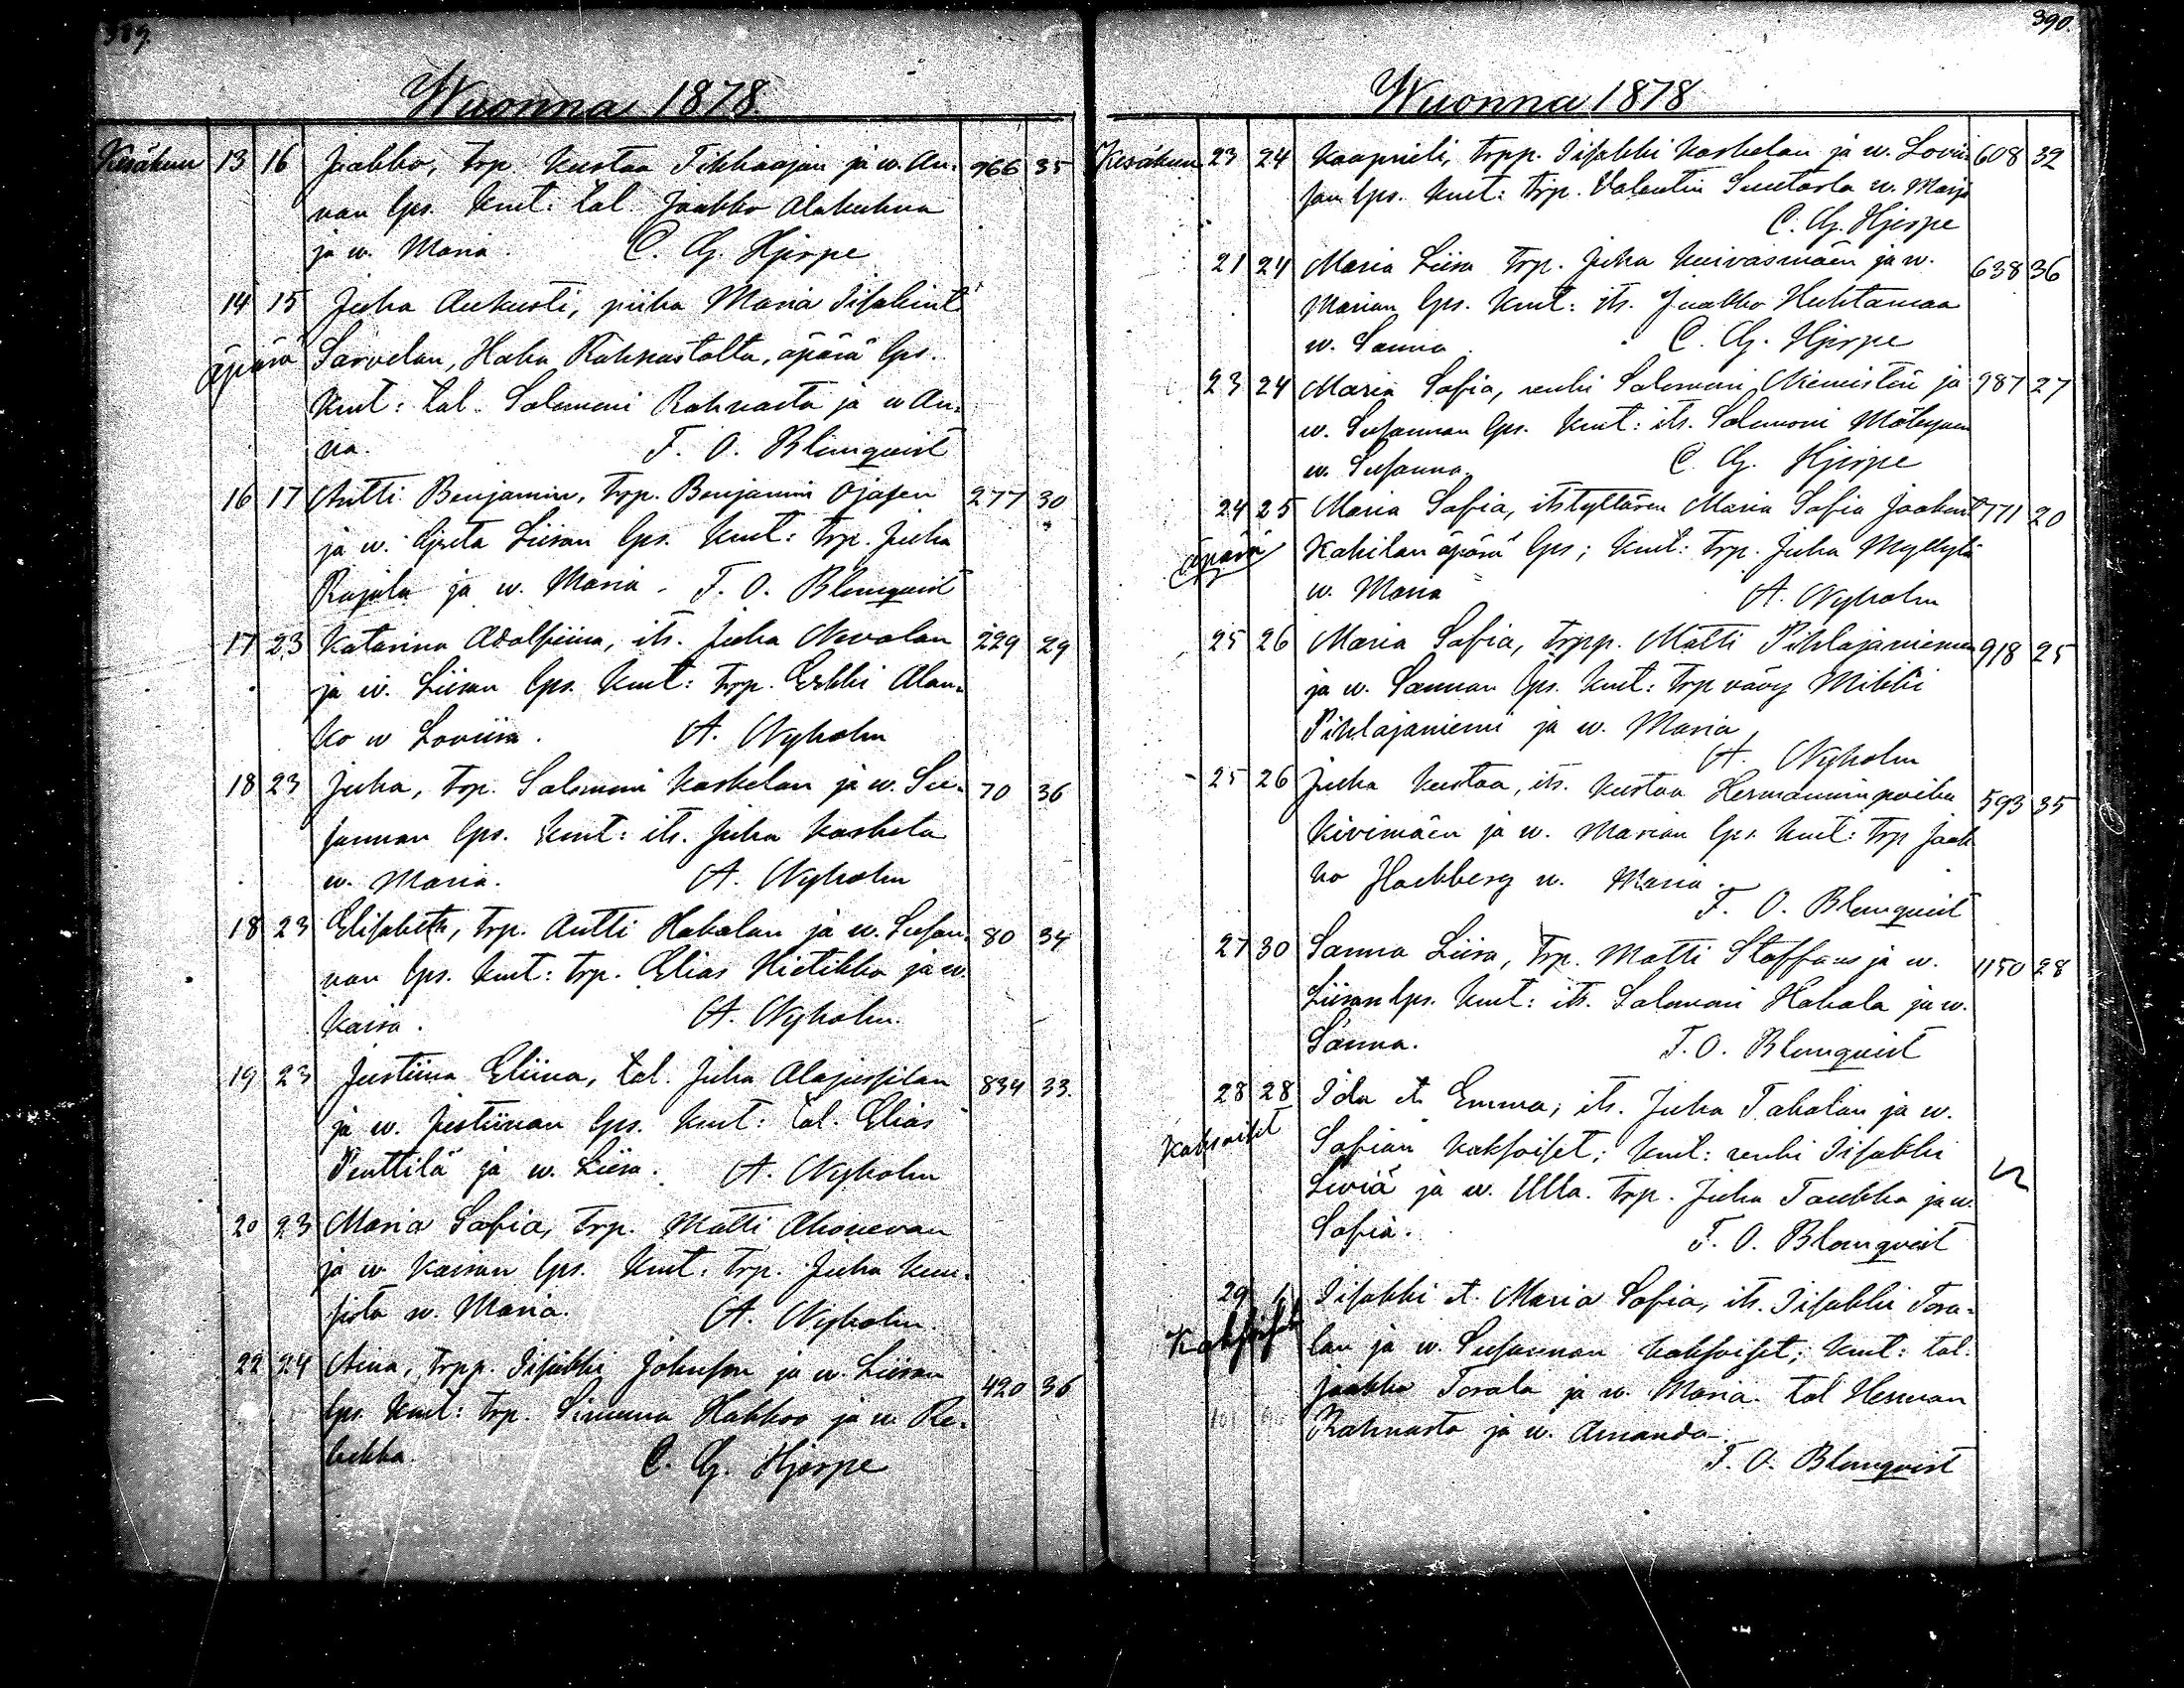 389.
Wuonna 1878.
Kesäkuu 13 16 Jaakko, trp. Kustaa Tikkaajan ja w. An- 966 35
nan lps. Kmt: tal. Jaakko Alakuhna
ja w. Maria. C. G. Hjerpe
14 15 Juha Aukusti, piika Maria Iisakint
äpärä Sarvelan, Haka Rahnastolta, äpärä lps.
Kmt: tal. Salomoni Rahnasto ja w An-
na. F. O. Blomquist
16 17 Antti Benjamin, trp. Benjamin Ojasen 277 30
ja w. Greta Liisan lps. Kmt: trp. Juha
Rajala ja w. Maria. F. O. Blomquist
17 23 Katarina Adolfiina, its. Juha Nevalan 229 29
ja w. Liisan lps. Kmt: trp. Erkki Alan-
ko w Loviisa. A. Nyholm
18 23 Juha, trp. Salomoni Kaskelan ja w. Su- 70 36
sannan lps. Kmt: its. Juha Kaskela
w. Maria. A. Nyholm
18 23 Elisabeth, trp. Antti Hakalan ja w. Susan- 80 34
nan lps. Kmt: trp. Elias Hietikko ja w.
Kaisa. A. Nyholm.
19 23 Justiina Eliina, tal. Juha Alajussilan 834 33.
ja w. Justiinan lps. Kmt: tal. Elias
Penttilä ja w. Liisa. A. Nyholm
20 23 Maria Sofia, trp. Matti Ahonevan
ja w Kaisan lps. Kmt: trp. Juha Kuu-
sisto w. Maria. A. Nyholm.
22 24 Aina, trpp. Iisakki Johnson ja w. Liisan 420 36
lps. Kmt: trp. Simuna Hakkoo ja w Re-
bekka. C. G. Hjerpe
390.
Wuonna 1878
Kesäkuu 23 24 Kaaprieli, trpp. Iisakki Kaskelan ja w. Lovii- 608 32
san lps. Kmt: trp. Valentin Suutarla w. Maija
C. G. Hjerpe
21 24 Maria Liisa trp. Juha Kuivasmäen ja w. 638 36
Marian lps. Kmt: its. Jaakko Huhtamaa
w. Sanna. C. G. Hjerpe
23 24 Maria Sofia, renki Salomoni Niemistön ja 987 27
w. Susannan lps. Kmt: its. Salomoni
w. Susanna. C. G. Hjerpe
24 25 Maria Sofia, itstyttären Maria Sofia Jaakont 771 20
äpärä Kahilan äpärä lps; Kmt: trp. Juha Myllylä
w. Maria A. Nyholm
25 26 Maria Sofia, trpp. Matti Pihlajaniemen 918 25
ja w. Sannan lps. Kmt: trp vävy Mikki
Pihlajaniemi ja w. Maria
A. Nyholm
25 26 Juha Kustaa, its. Kustaa Hermanninpoika 593 35
Kivimäen ja w. Marian lps. Kmt: trp Jaak
ko Hackberg w. Maria.
F. O. Blomquist
27 30 Sanna Liisa, trp. Matti Staffans ja w. 1150 28
Liisan lps. Kmt: its. Salomoni Hakala ja w.
Sanna. F. O. Blomquist
28 28 Ida et Emma, its. Juha Takalan ja w.
Kaksoiset Sofian kaksoiset; Kmt: renki Iisakki
Liviä ja w. Ulla. trp. Juha Taukka ja w.
Sofia. F. O. Blomqvist
29 Iisakki et Maria Sofia, its. Iisakki Tora-
Kaksoiset lan ja w. Susannan kaksoiset; Kmt: tal.
Jaakko Torala ja w. Maria. tal Herman
Rahnasto ja w. Amanda.
F. O. Blomqvist